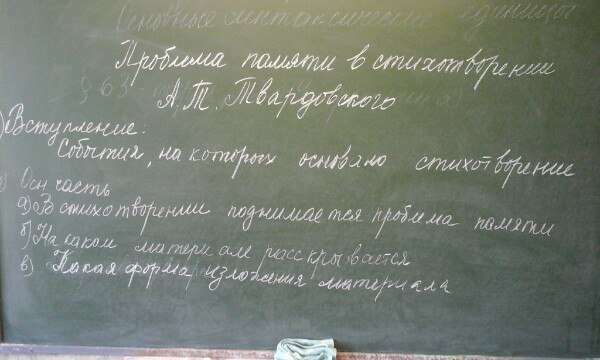 Основные синтаксические единицы
Проблема памяти в стихотворении
§ 63
А.Т. Твардовского
) Вступление:
События, на которых основяло стихотворение
Осн часть
а) В стихотворении поднимается проблема памяти
б) На каком материале расскрывается
в) Какая форма изложения материала